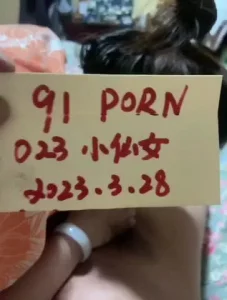 91 PORN
023 小仙女
2023.3.28